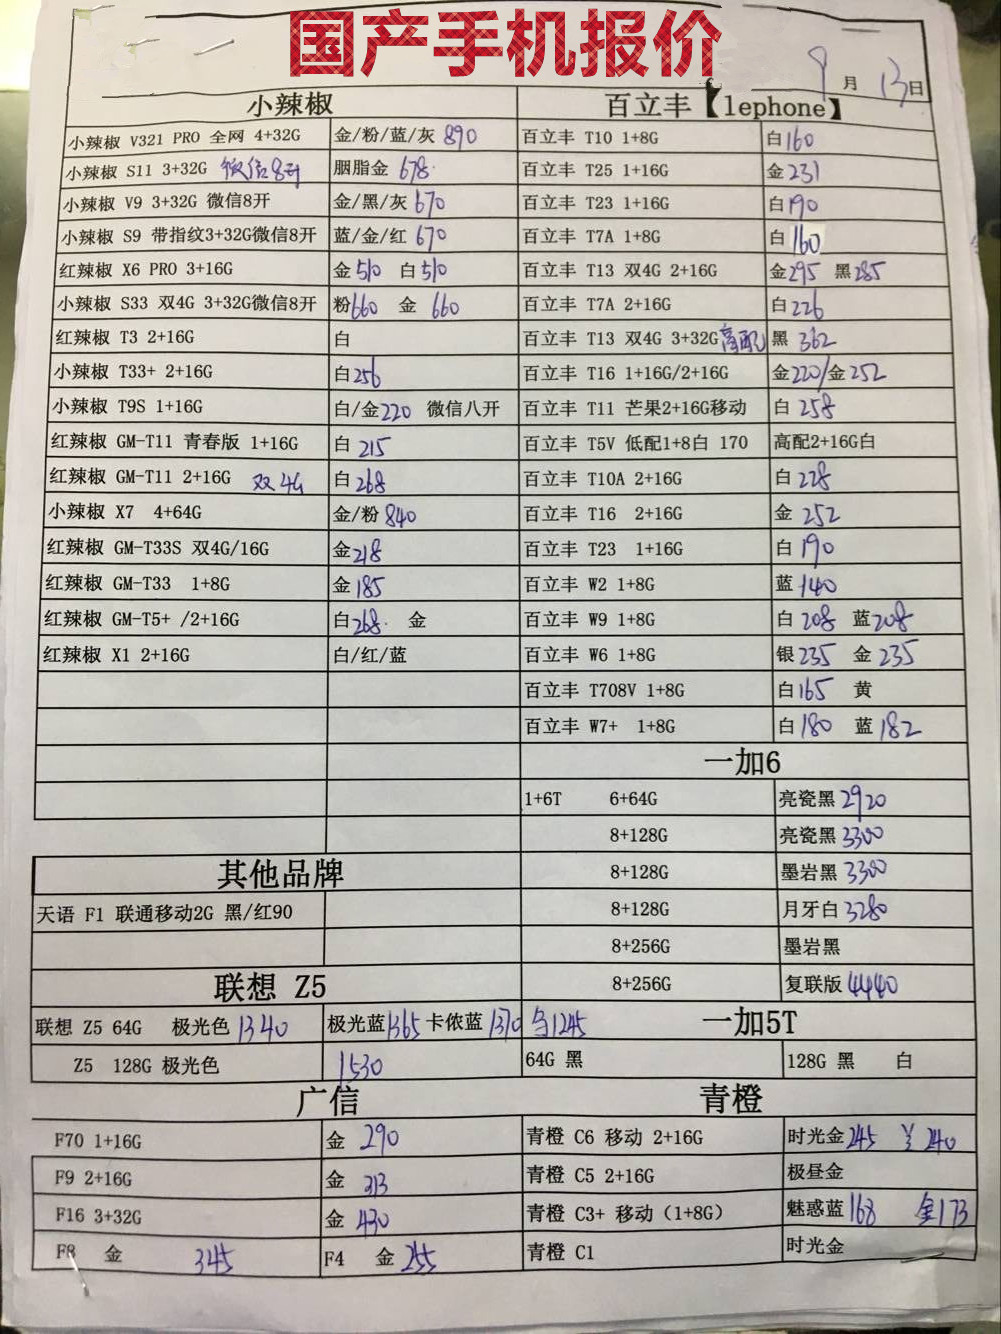 国产手机报价
9月13日
小辣椒
小辣椒 V321 PRO 全网 4+32G 金/粉/蓝/灰 890
小辣椒 S11 3+32G 微信8开 胭脂金 678
小辣椒 V9 3+32G 微信8开 金/黑/灰 670
小辣椒 S9 带指纹3+32G微信8开 蓝/金/红 670
红辣椒 X6 PRO 3+16G 金510 白510
小辣椒 S33 双4G 3+32G微信8开 粉660 金 660
红辣椒 T3 2+16G 白
小辣椒 T33+ 2+16G 白256
小辣椒 T9S 1+16G 白/金220 微信八开
红辣椒 GM-T11 青春版 1+16G 白 215
红辣椒 GM-T11 2+16G 双4G 白268
小辣椒 X7 4+64G 金/粉 840
红辣椒 GM-T33S 双4G/16G 金218
红辣椒 GM-T33 1+8G 金185
红辣椒 GM-T5+ /2+16G 白268 金
红辣椒 X1 2+16G 白/红/蓝
百立丰【lephone】
百立丰 T10 1+8G 白160
百立丰 T25 1+16G 金231
百立丰 T23 1+16G 白190
百立丰 T7A 1+8G 白160
百立丰 T13 双4G 2+16G 金295 黑285
百立丰 T7A 2+16G 白226
百立丰 T13 双4G 3+32G高配 黑 362
百立丰 T16 1+16G/2+16G 金220/金252
百立丰 T11 芒果2+16G移动 白 258
百立丰 T5V 低配1+8白 170 高配2+16G白
百立丰 T10A 2+16G 白 228
百立丰 T16 2+16G 金 252
百立丰 T23 1+16G 白 190
百立丰 W2 1+8G 蓝 140
百立丰 W9 1+8G 白 208 蓝208
百立丰 W6 1+8G 银235 金 235
百立丰 T708V 1+8G 白165 黄
百立丰 W7+ 1+8G 白 180 蓝 182
一加6
1+6T 6+64G 亮瓷黑 2920
8+128G 亮瓷黑 3300
8+128G 墨岩黑 3300
8+128G 月牙白 3280
8+256G 墨岩黑
8+256G 复联版 4440
其他品牌
天语 F1 联通移动2G 黑/红90
联想 Z5
联想 Z5 64G 极光色 1340 极光蓝1365 卡侬蓝 1370 1245
Z5 128G 极光色 1530
一加5T
64G 黑 128G 黑 白
广信
F70 1+16G 金 290
F9 2+16G 金 313
F16 3+32G 金 430
F8 金 345 F4 金 255
青橙
青橙 C6 移动 2+16G 时光金245 ¥ 240
青橙 C5 2+16G 极昼金
青橙 C3+ 移动（1+8G） 魅惑蓝 168 金173
青橙 C1 时光金